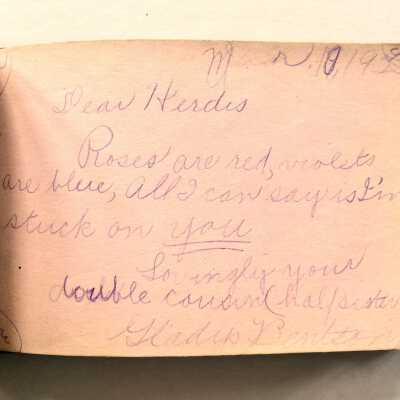 Dear Herdis
Roses are red, violets
are blue, All I can say is I'm
stuck on you
Lovingly your
double cousin (half sister
Gladys